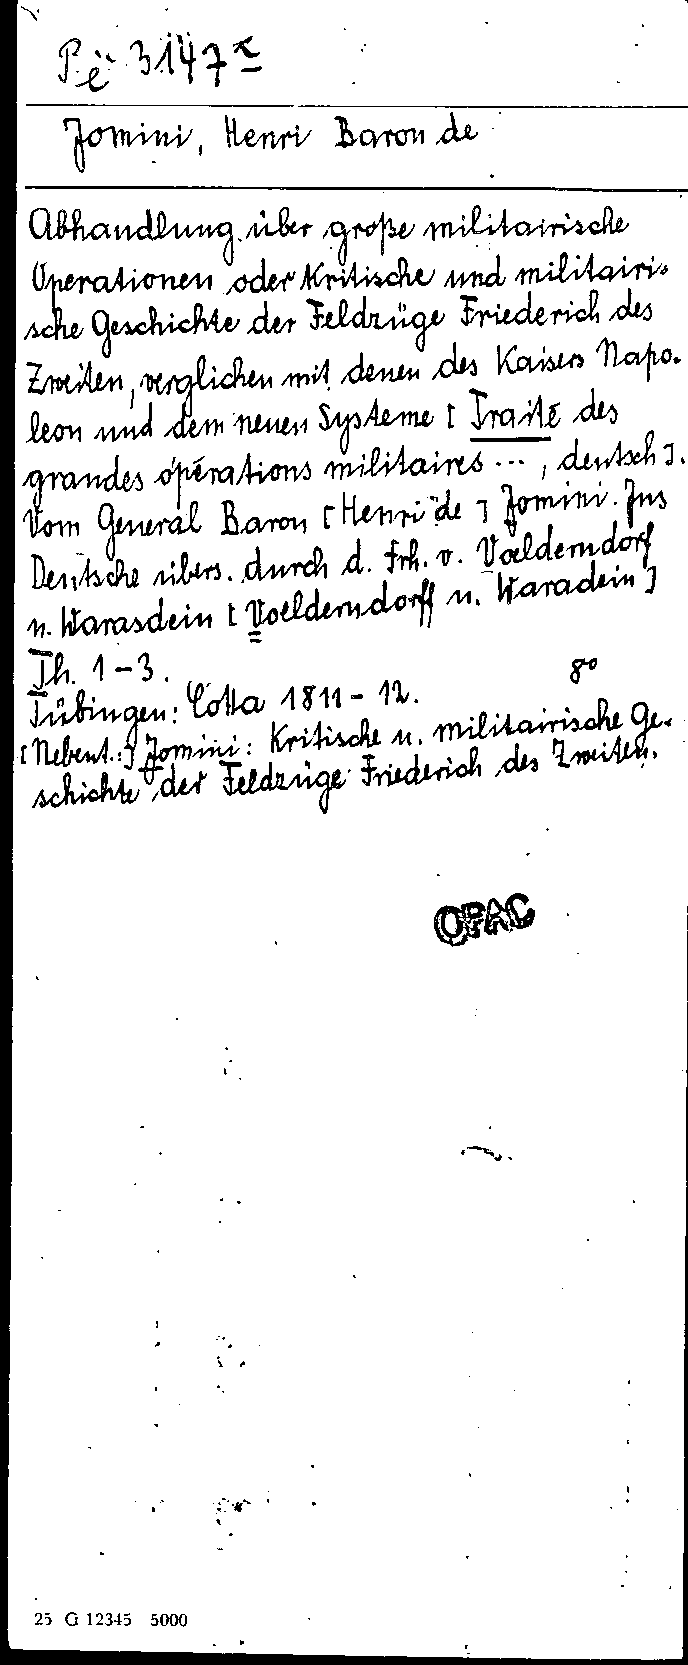 Pè 3147
Jomini, Henri Baron de
Abhandlung über große militairische
Operationen oder Kritische und militairi-
sche Geschichte der Feldzüge Friederich des
Zweiten, verglichen mit denen des Kaisers Napo-
leon und dem neuen Systeme [Traité des
grandes opérations militaires ..., deutsch].
Vom General Baron [Henri de] Jomini. Ins
Deutsche übers. durch d. Frh. v. Voelderndorf
u. Warasdein [Voelderndorff u. Waradein]
Th. 1-3. 8°
Tübingen: Cotta 1811-12.
[Nebent.:] Jomini: Kritische u. militairische Ge-
schichte der Feldzüge Friederich des Zweiten.
OPAC
25 G 12345 5000